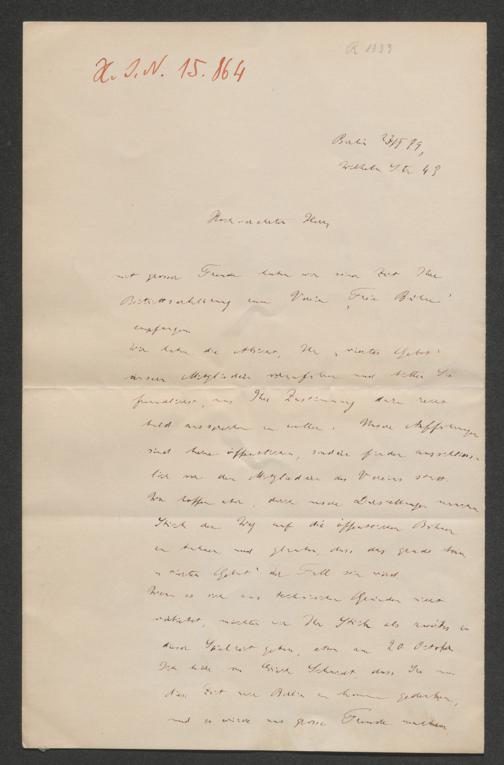 R 1339
H. I. N. 15.864
Berlin 23/V 89,
Wilhelm Str 49
Hochverehrter Herr,
mit grosser Freude haben wir seiner Zeit Ihre
Beitrittserklärung zum Verein „Freie Bühne“
empfangen
Wir haben die Absicht, Ihr „viertes Gebot“
unseren Mitgliedern vorzuführen und bitten Sie
freundlichst, uns Ihre Zustimmung dazu recht
bald aussprechen zu wollen. Unsere Aufführungen
sind keine öffentlichen, sondern finden ausschliess-
lich vor den Mitgliedern des Vereins statt.
Wir hoffen aber, dass unsere Darstellungen manchem
Stück den Weg auf die öffentlichen Bühnen
zu bahnen und glauben, dass das gerade beim
„vierten Gebot“ der Fall sein wird.
Wenn es sich aus technischen Gründen nicht
verbietet, möchten wir Ihr Stück als zweites in
dieser Spielzeit geben, etwa am 20. October
Ich höre von Erich Schmidt, dass Sie um
diese Zeit nach Berlin zu kommen gedenken,
und es würde uns grosse Freude machen